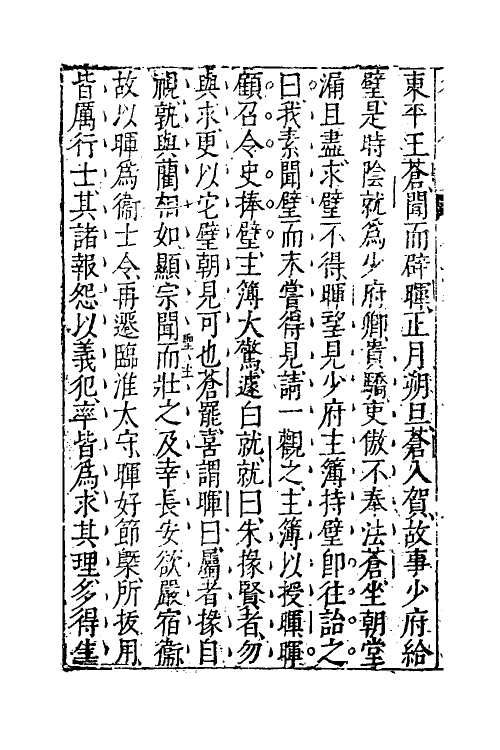 東平王蒼聞而辟暉正月朔旦蒼入賀故事少府給
璧是時陰就爲少府卿貴驕吏傲不奉法蒼坐朝堂
漏且盡求璧不得暉望見少府主簿持璧卽往詒之
曰我素聞璧而未嘗得見請一觀之主簿以授暉暉
顧召令史捧璧主簿大驚遽白就就曰朱掾賢者勿
與求更以宅璧朝見可也蒼罷喜謂暉曰屬者掾自
聖主
視孰與藺相如顯宗聞而壯之及幸長安欲嚴宿衞
故以暉爲衞士令再遷臨淮太守暉好節槩所拔用
皆厲行士其諸報怨以義犯率皆爲求其理多得生